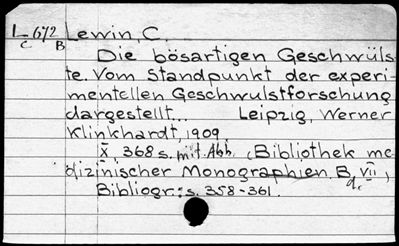 L672 Lewin, C.
C B
Die bösartigen Geschwüls-
te. Vom Standpunkt der experi-
mentellen Geschwulstforschung
dargestellt... Leipzig, Werner
Klinkhardt, 1909.
X, 368 s. mit. Abb. (Bibliothek me
dizinischer Monographien, Bd. VII)
Bibliogr.: s. 358-361.